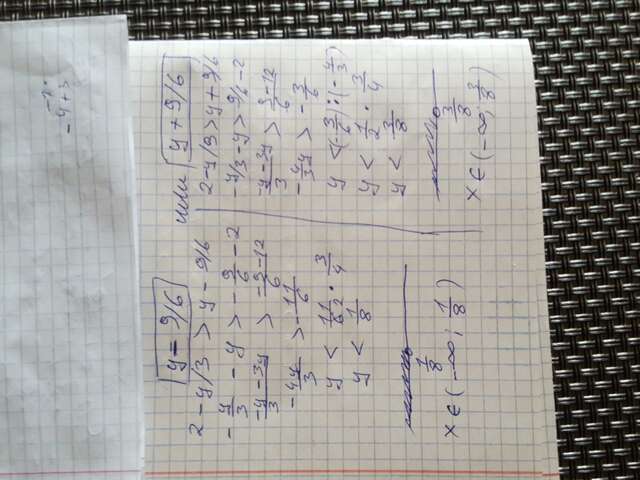 y = 9/6
2 - y/3 > y - 9/6
- y/3 - y > - 9/6 - 2
-y-3y/3 > -9-12/6
-4y/3 > -11/6
y < 11/62 · 3/4
y < 1/8
1/8
x ∈ (-∞; 1/8)
или y + 9/6
2 - y/3 > y + 9/6
- y/3 - y > 9/6 - 2
-y-3y/3 > 9-12/6
-4y/3 > - 3/6
y < (-3/6) : (-4/3)
y < 1/2 · 3/4
y < 3/8
3/8
x ∈ (-∞; 3/8)